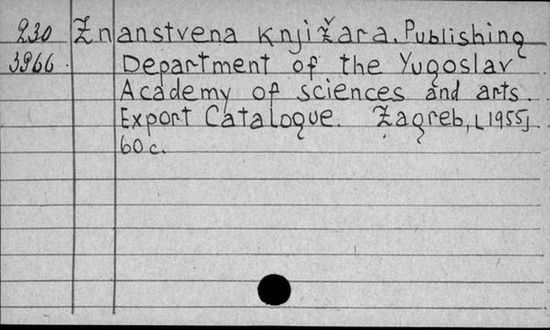 230 Znanstvena knjižara. Publishing
3966. Department of the Yugoslav
Academy of sciences and arts.
Export Catalogue. Zagreb, [1955]
60 c.